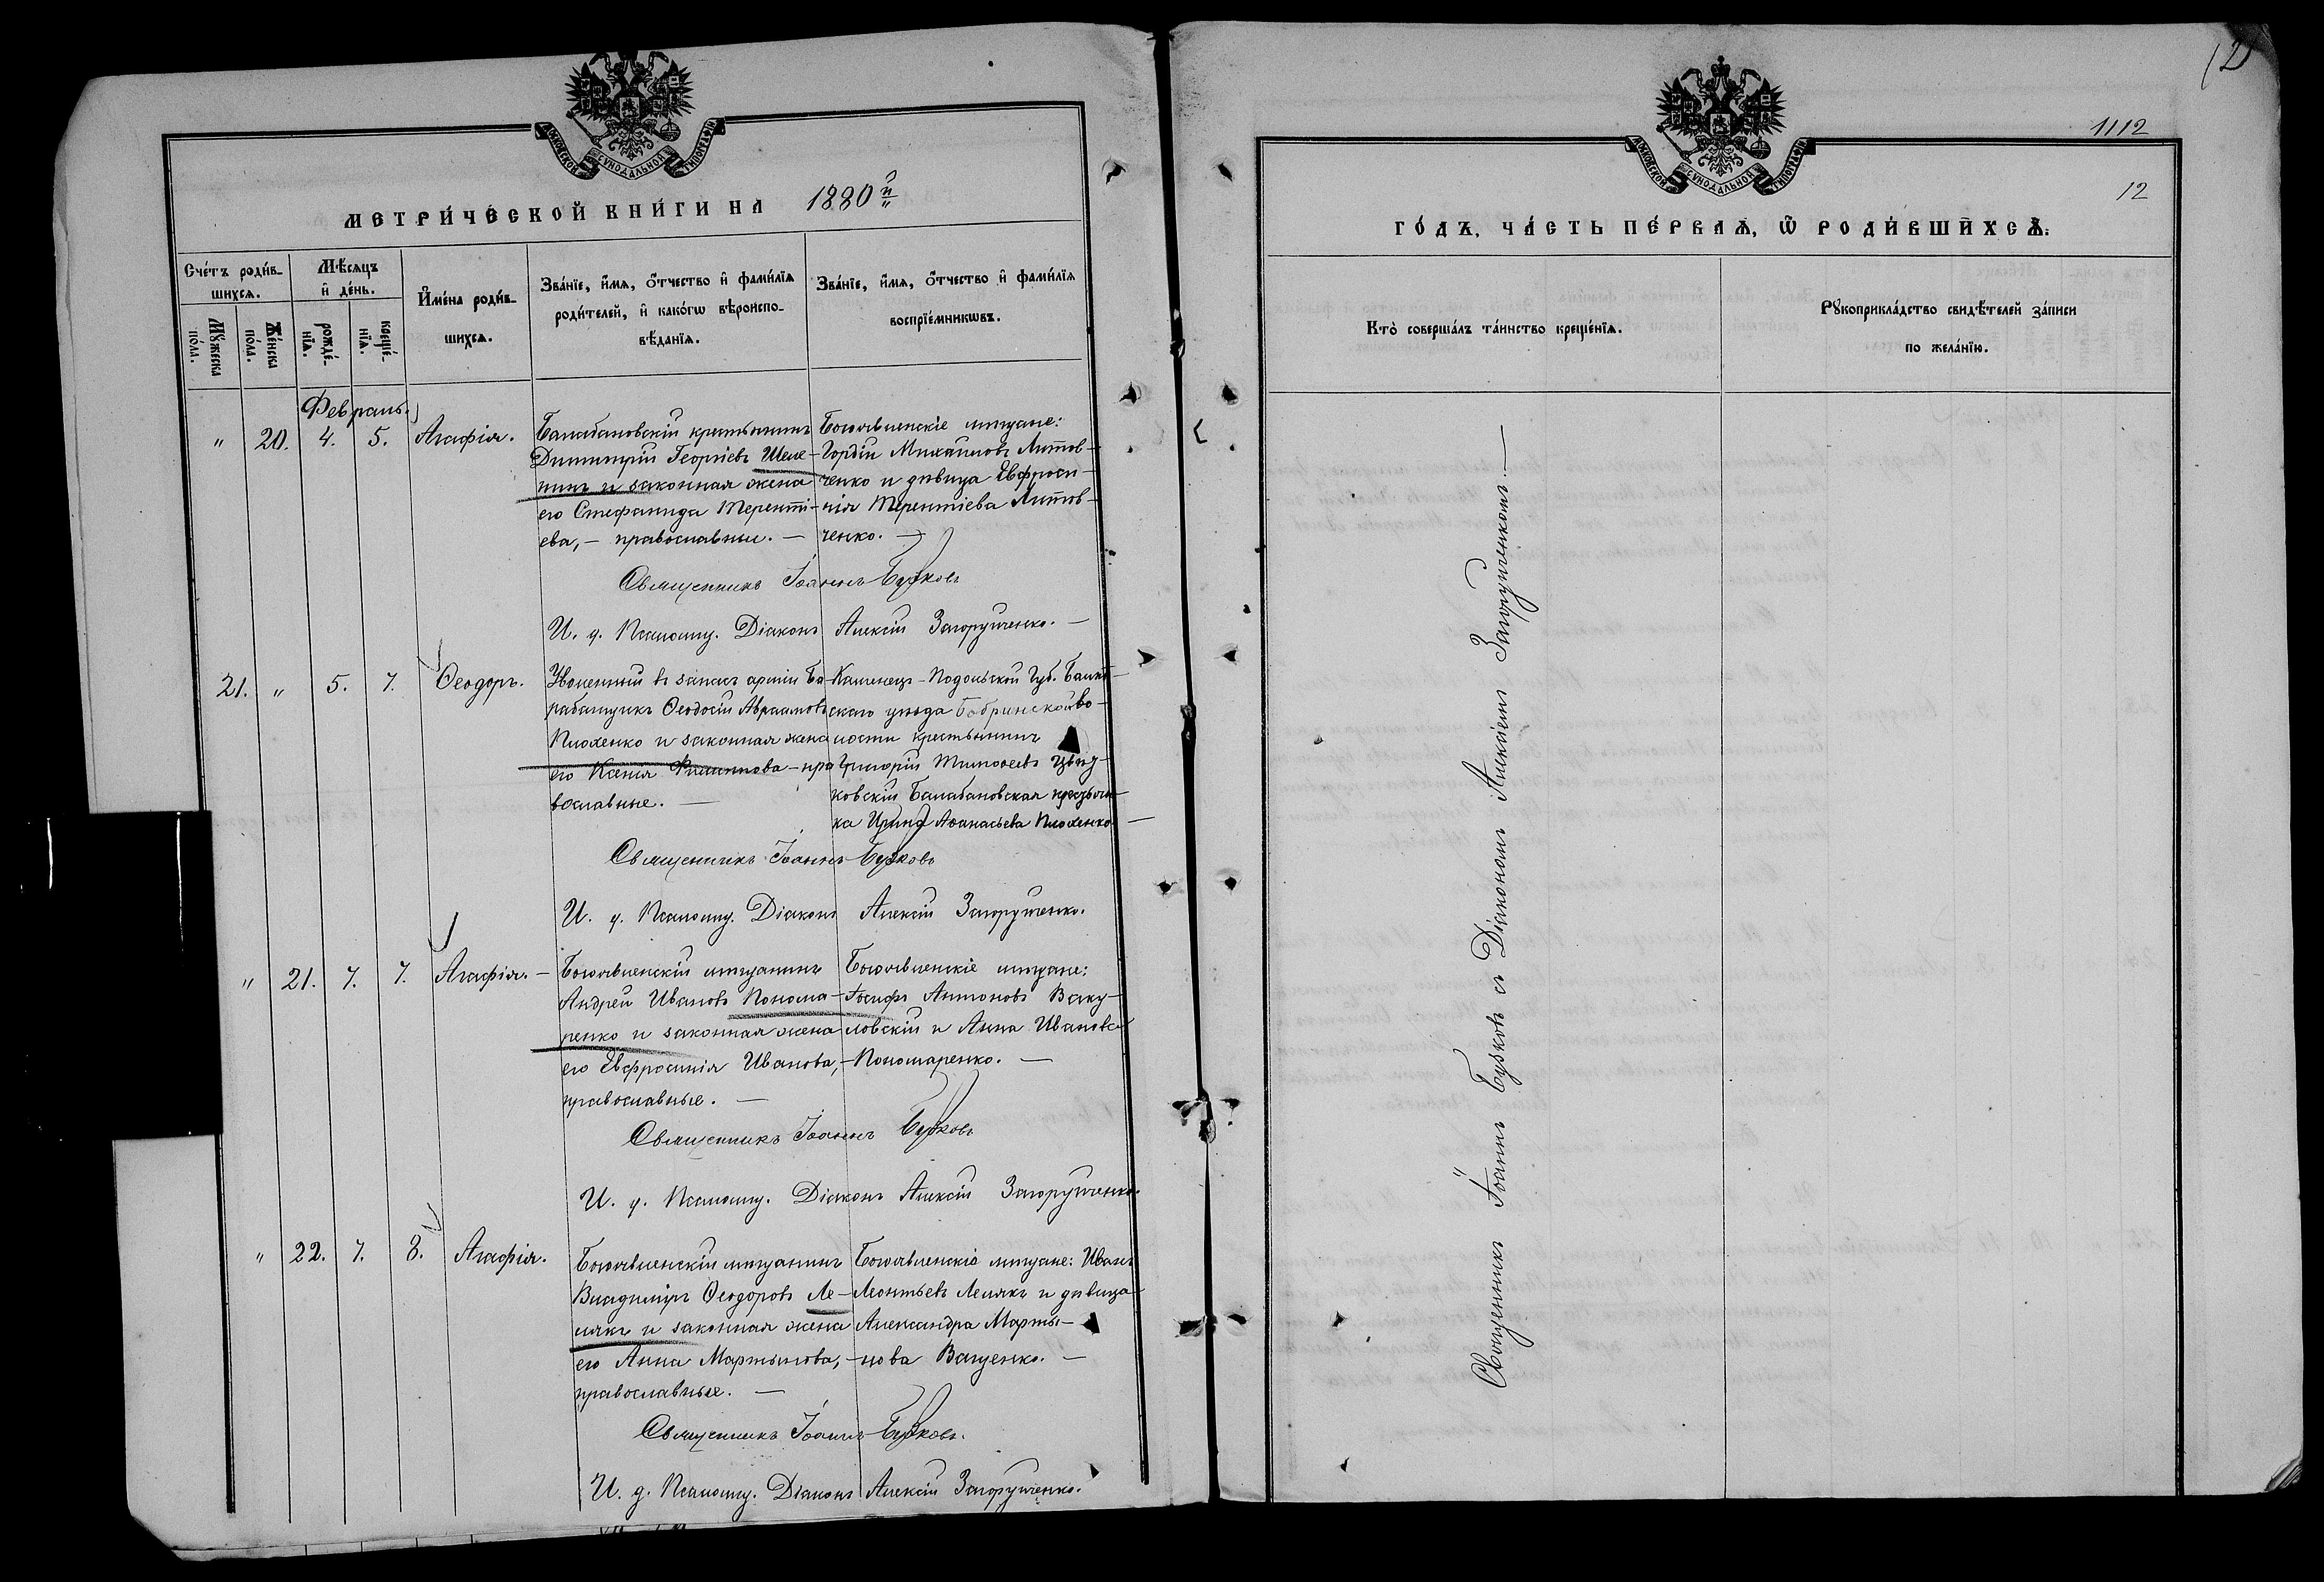 МОСКОВСКОЙ СѴНОДАЛЬНОЙ ТИПОГРАФІИ
МЕТРИ́ЧЕСКОЙ КНИ́ГИ НА 1880й
Сче́тъ роди́в-
шихсѧ.
Мѣ́сѧцъ
и҆ де́нь.
Мꙋ́жеска
по́ла.
Же́нска
по́ла.
рожде́-
нїѧ.
креще́-
нїѧ.
И҆мена̀ роди́в-
шихсѧ.
Зва́нїе, и҆́мѧ, ѻ҆́тчество и҆ фами́лїѧ
роди́телей, и҆ како́гѡ вѣроиспо-
вѣ́данїѧ.
Зва́нїе, и҆́мѧ, ѻ҆́тчество и҆ фами́лїѧ
воспрїе́мникѡвъ.
Февраль.
" 20. 4. 5. Агафія.
Балабановскій крестьянинъ
Димитрій Георгіевъ Шеле-
нинъ и законная жена
его Стефанида Теренті-
ева, — православные. —
Богоявленскіе мѣщане:
Гордій Михаиловъ Литов-
ченко и дѣвица Евфроси-
нія Терентіева Литов-
ченко. —
Священникъ Іоаннъ Бужковъ
И. д. Псаломщ. Діаконъ Алексій Загоруйченко. —
21. " 5. 7. Ѳеодоръ.
Уволенный въ запасъ арміи Ба-
рабанщикъ Ѳеодосій Авраамовъ
Плохенко и законная жена
его Ксенія Филиппова — пра
вославные. —
Каменецъ-Подольской Губ. Балт-
скаго уѣзда Бобринской во-
лости крестьянинъ
Григорій Тимоѳеевъ
ковскій Балабановская крестьян-
ка Ирина Аѳанасьева Плохенко. —
Священникъ Іоаннъ Бужковъ
И. д. Псаломщ. Діаконъ Алексій Загоруйченко.
" 21. 7. 7. Агафія. —
Богоявленскій мѣщанинъ
Андрей Ивановъ Понома-
ренко и законная жена
его Евфросинія Иванова, —
православные. —
Богоявленскіе мѣщане:
Іосифъ Антоновъ Ваку-
ловскій и Анна Иванова
Пономаренко. —
Священникъ Іоаннъ Бужковъ
И. д. Псаломщ. Діаконъ Алексій Загоруйченко.
" 22. 7. 8. Агафія.
Богоявленскій мѣщанинъ
Владиміръ Ѳеодоровъ Ле-
лякъ и законная жена
его Анна Мартынова, —
православные. —
Богоявленскіе мѣщане: Иванъ
Леонтьевъ Лелякъ и дѣвица
Александра Марты-
нова Ващенко. —
Священникъ Іоаннъ Бужковъ.
И. д. Псаломщ. Діаконъ Алексій Загоруйченко.
1112
12
МОСКОВСКОЙ СѴНОДАЛЬНОЙ ТИПОГРАФІИ
ГО́ДЪ, ЧА́СТЬ ПЕ́РВАѦ, Ѿ РОДИ́ВШИХСѦ:
Кто̀ соверша́лъ та́инство креще́нїѧ.
Рꙋкоприкла́дство свидѣ́телей за́писи
по жела́нїю.
Священникъ Іоаннъ Бужковъ съ Діакономъ Алексіемъ Загоруйченкомъ. —